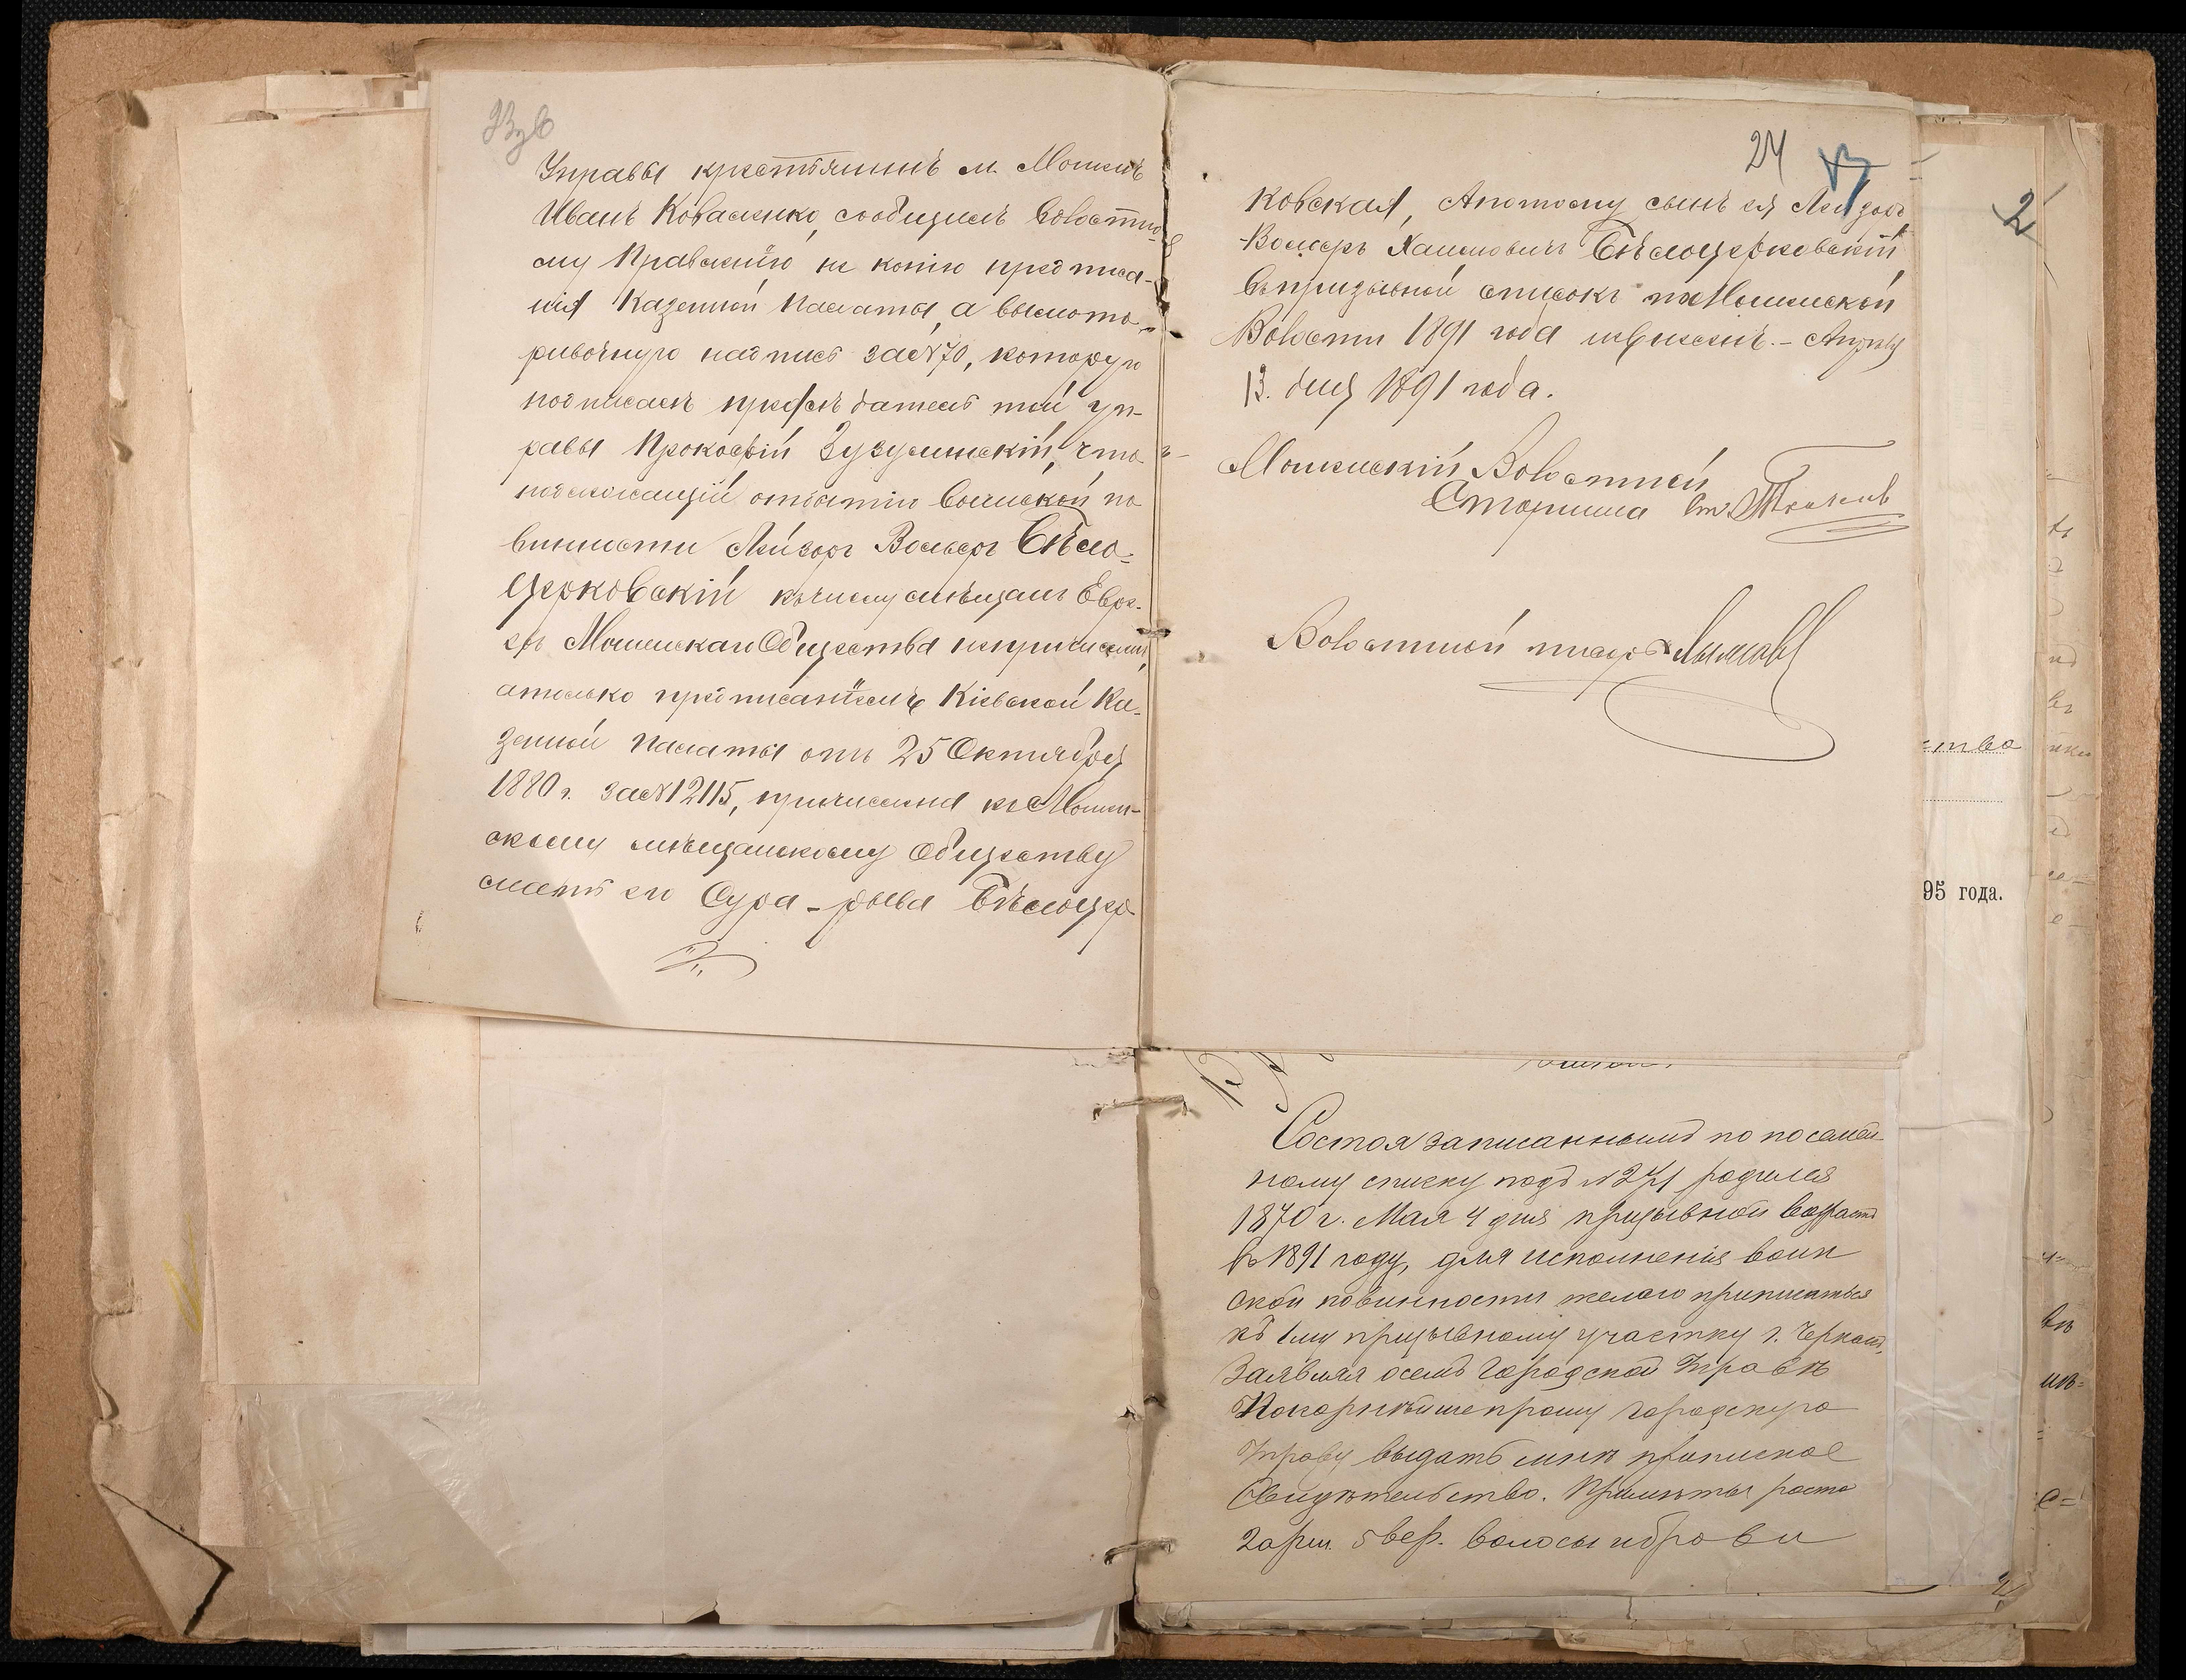 Управы крестьянинъ м. Мошенъ
Иванъ Коваленко, сообщилъ Волостно-
му Правленію не копію предписа-
нія Казенной Палаты, а
надпись за №70, которую
подписалъ предсѣдатель той Уп-
равы Прокофій что
подлежащій отбытію Воинской по
винности Лейзоръ Вольфъ Бѣло-
церковскій къ числу мѣщанъ Евре-
евъ Мошенскаго Общества непричисленъ,
а только предписаніемъ Кіевской Ка-
зенной Палаты отъ 25 Октября
1880 г. за №12115, причислена къ Мошен-
скому мѣщанскому Обществу
мать его Сура-рыва Бѣлоцер
24
ковская, А потому сынъ ея Лейзоръ
-Вольфъ Хаимовичъ Бѣлоцерковскій
Въ призывной списокъ по Мошенской
Волости 1891 года невнесенъ. - Апрѣля
13. дня 1891 года.
Мошенскій Волостной
Старшина
Волостной писарь
2
ство
95 года.
Состоя записаннымъ по посемей
ному списку подъ №271 родился
1870 г. Мая 4 дня призывной возрастъ
въ 1891 году, для исполненія воин
ской повинности желаю приписаться
къ 1му призывному участку г. Черкасъ,
Заявляя о семъ Городской Управѣ
Покорнѣйше прошу городскую
Управу выдать мнѣ приписное
Свидѣтельство. Примѣты роста
2 арш. 5 вер. волосы и брови